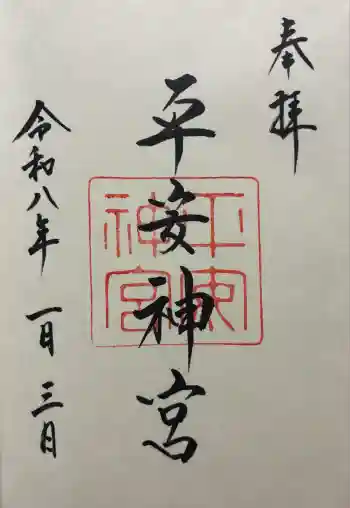 奉拝
平安神宮
平安神宮
令和八年 一月三日